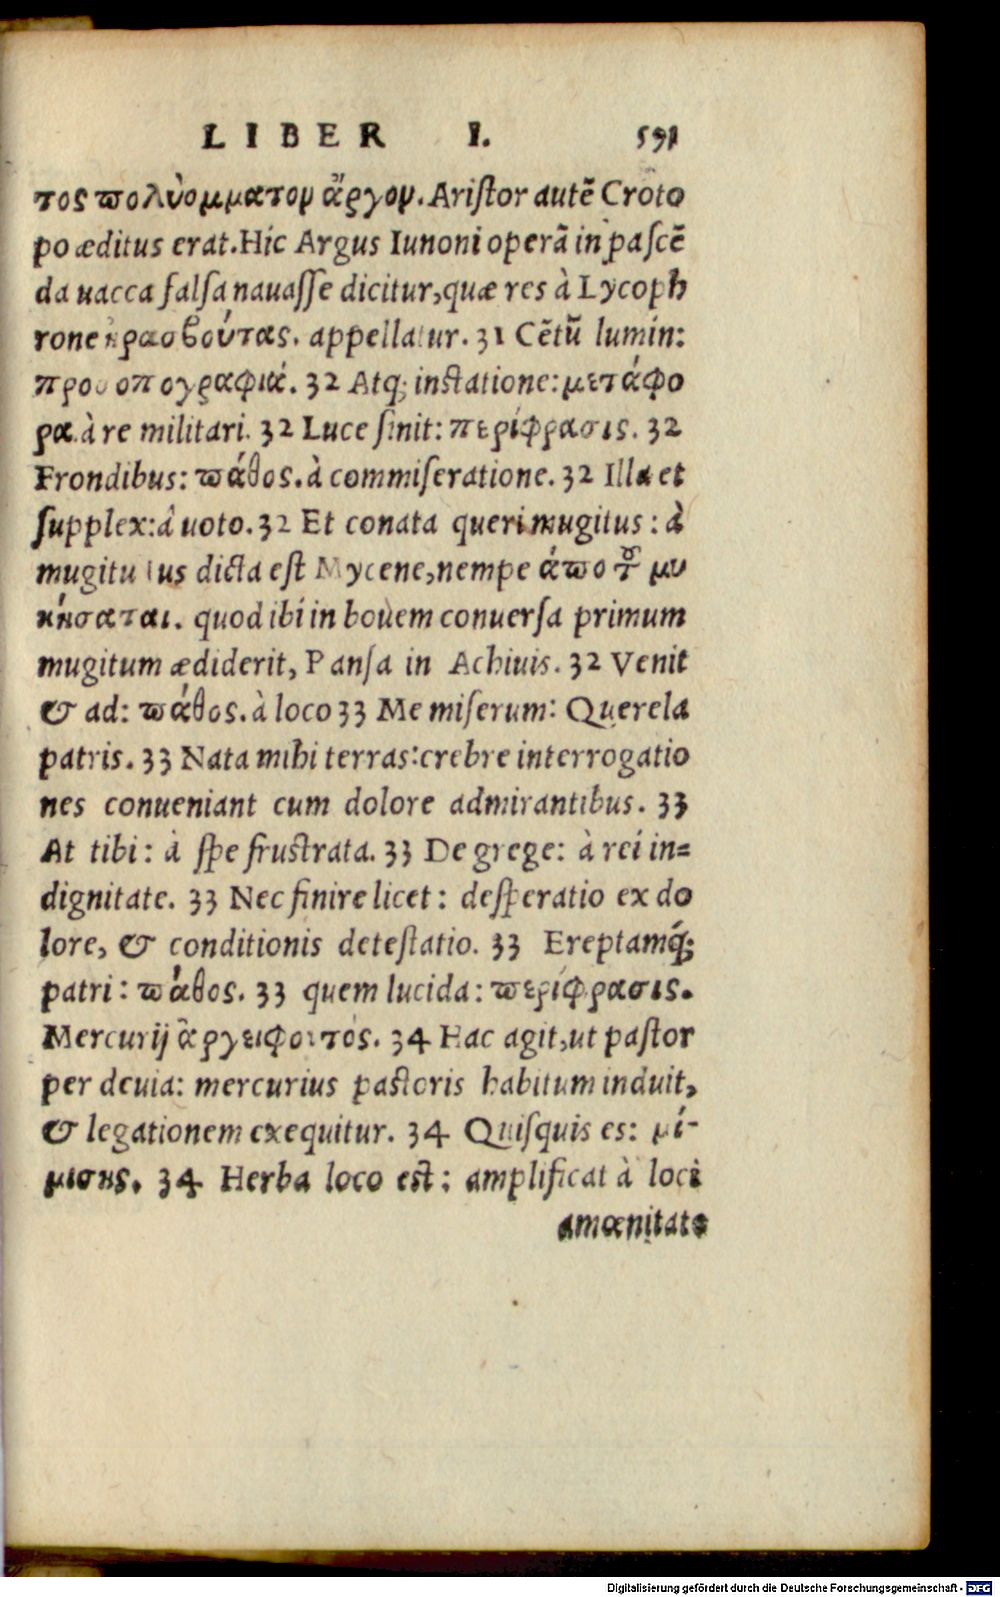 LIBER I. 591
τος πολύομματον ἄργον. Ariſtor autē Croto
po æditus erat. Hic Argus Iunoni operā in paſcē
da uacca falſa nauaſſe dicitur, quæ res à Lycoph
rone appellatur. 31 Cētū lumin:
προσοπογραφιά. 32 Atq; inſtatione: μετάφο
ρα. à re militari. 32 Luce ſinit: περίφρασις. 32
Frondibus: πάθος. à commiſeratione. 32 Illa et
ſupplex: à uoto. 32 Et conata queri mugitus: à
mugitu ius dicta eſt Mycene, nempe ἀπο τȣ͂ μυ
κήσαται. quod ibi in bouem conuerſa primum
mugitum ædiderit, Panſa in Achiuis. 32 Venit
& ad: πάθος. à loco 33 Me miſerum: Querela
patris. 33 Nata mihi terras: crebre interrogatio
nes conueniant cum dolore admirantibus. 33
At tibi: à ſpe fruſtrata. 33 De grege: à rei in=
dignitate. 33 Nec finire licet: deſperatio ex do
lore, & conditionis deteſtatio. 33 Ereptamq́;
patri: πάθος. 33 quem lucida: περίφρασις.
Mercurij 34 Hac agit, ut paſtor
per deuia: mercurius paſtoris habitum induit,
& legationem exequitur. 34 Quiſquis es: μί-
μισης. 34 Herba loco eſt: amplificat à loci
amœnitate
Digitalisierung gefördert durch die Deutsche Forschungsgemeinschaft - DFG